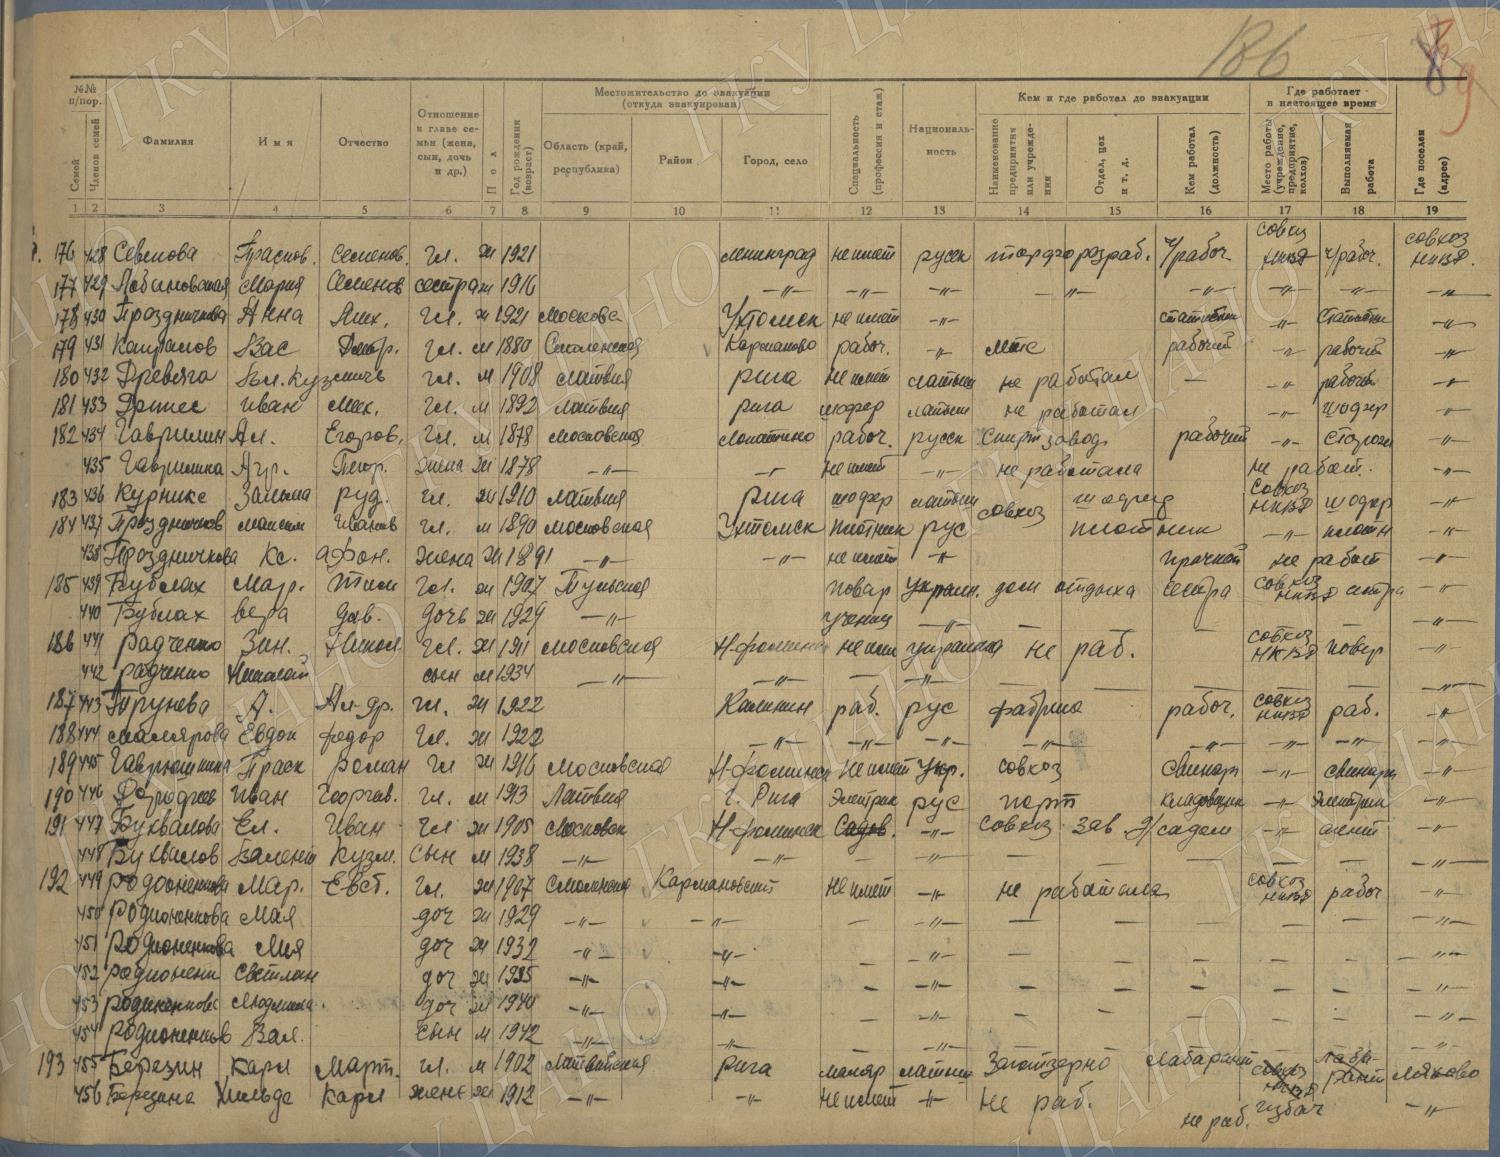 186
89
№№ п/пор.
Семей
Членов семей
Фамилия
Имя
Отчество
Отношение к главе семьи (жена, сын, дочь и др.)
Пол
Год рождения (возраст)
Местожительство до эвакуации (откуда эвакуирован)
Область (край, республика)
Район
Город, село
Специальность (профессия и стаж)
Национальность
Кем и где работал до эвакуации
Наименование предприятия или учреждения
Отдел, цех и т. д.
Кем работал (должность)
Где работает в настоящее время
Место работы (учреждение, предприятие, колхоз)
Выполняемая работа
Где поселен (адрес)
1 2 3 4 5 6 7 8 9 10 11 12 13 14 15 16 17 18 19
176 428 Семен. гл. ж 1921 Ленинград не имеет русск торфоразраб. ч/рабоч. совхоз НКВД ч/рабоч. совхоз НКВД.
177 429 Мария Семенов сестра ж 1916 —"— —"— —"— —"— —"— —"— —"— —"—
178 430 Праздничкова Анна Мих. гл. ж 1921 Москова Ухтомск не имеет —"— —"— —"—
179 431 Вас гл. м 1880 Смоленская Карманово рабоч. —"— рабочий —"— рабочий —"—
180 432 Древяга Вл. Кузьмичь гл. м 1908 Латвия Рига не имеет латыш не работал — —"— рабочий —"—
181 433 Иван Мих. гл. м 1892 Латвия Рига шофер латыш не работал —"— шофер —"—
182 434 Гаврилин Ал. Егоров. гл. м 1878 Московская Лопатино рабоч. русск Спиртзавод рабочий —"— сторож —"—
435 Гаврилина Агр. Петр. жена ж 1878 —"— —"— не имеет —"— не работала не работ. —"—
183 436 Курникс Зальма Руд. гл. ж 1910 Латвия Рига шофер латыш совхоз шофер совхоз НКВД шофер —"—
184 437 Праздничков Максим Иванов гл. м 1890 Московская Ухтомск плотник рус плотник —"— плотн —"—
438 Праздничкова Кс. Афон. жена ж 1891 —"— —"— не имеет —"— прачкой не работ —"—
185 439 Бублах Мар. Тим гл. ж 1907 Тульская повар украин. дом отдыха сестра совхоз НКВД сестра —"—
440 Бублах Вера Дав. дочь ж 1929 —"— учениц —"— — — — —"—
186 441 Радченко Зин. Никол. гл. ж 1911 Московская Н-фоминск не им украинка не раб. совхоз НКВД повар —"—
442 Радченко Николай сын м 1934 —"— —"— — —"— — — — — —"—
187 443 Трунева А. Ал-др. гл. ж 1922 Калинин раб. рус фабрика рабоч. совхоз НКВД раб. —"—
188 444 Смолярова Евдок Федор гл. ж 1922 —"— —"— —"— —"— —"— —"— —"— —"—
189 445 Гаврюшкина Праск Роман гл ж 1916 Московская Н-фоминск не имеет укр. совхоз свинар —"— свинарк —"—
190 446 Иван Георгиев. гл. м 1913 Латвия г. Рига электрик рус порт кладовщик —"— электрик —"—
191 447 Буквалова Ел. Иван гл ж 1905 Московск Н-фоминск Садов. —"— совхоз зав д/садом —"— агент —"—
448 Буквалов Валент Кузм. сын м 1938 —"— —"— — —"— — — — — — —"—
192 449 Родионенкова Мар. Евст. гл. ж 1907 Смоленская Кармановский не имеет —"— не работала совхоз НКВД рабоч —"—
450 Родионенкова Мая доч ж 1929 —"— —"— — —"— — — — — — —"—
451 Родионенкова Лия доч ж 1932 —"— —"— — —"— — — — — — —"—
452 Родионенк Светлан доч ж 1935 —"— —"— — —"— — — — — — —"—
453 Родионенкова Людмила доч ж 1940 —"— —"— — —"— — — — — — —"—
454 Родионенков Вал. сын м 1942 —"— —"— — —"— — — — — — —"—
193 455 Березин Карл Март. гл. м 1902 Латвийская Рига маляр латыш Заготзерно лаборант совхоз НКВД лаборант Ляхово
456 Березина Хильда Карл жена ж 1912 —"— —"— не имеет —"— не раб. не раб. избач —"—
ГКУ ЦАНО